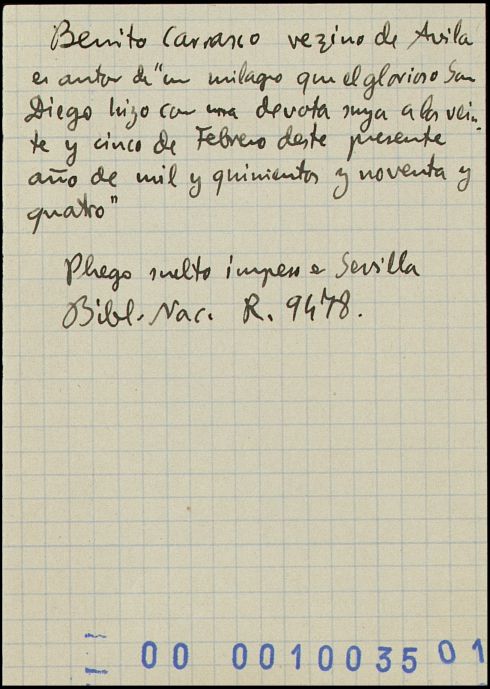 Benito Carrasco vezino de Avila
es autor de "un milagro que el glorioso San
Diego hizo con una devota suya a los vein-
te y cinco de Febrero deste presente
año de mil y quinientos y noventa y
quatro"
Pliego suelto impreso e Sevilla
Bibl. Nac. R. 9478.
00 0010035 01